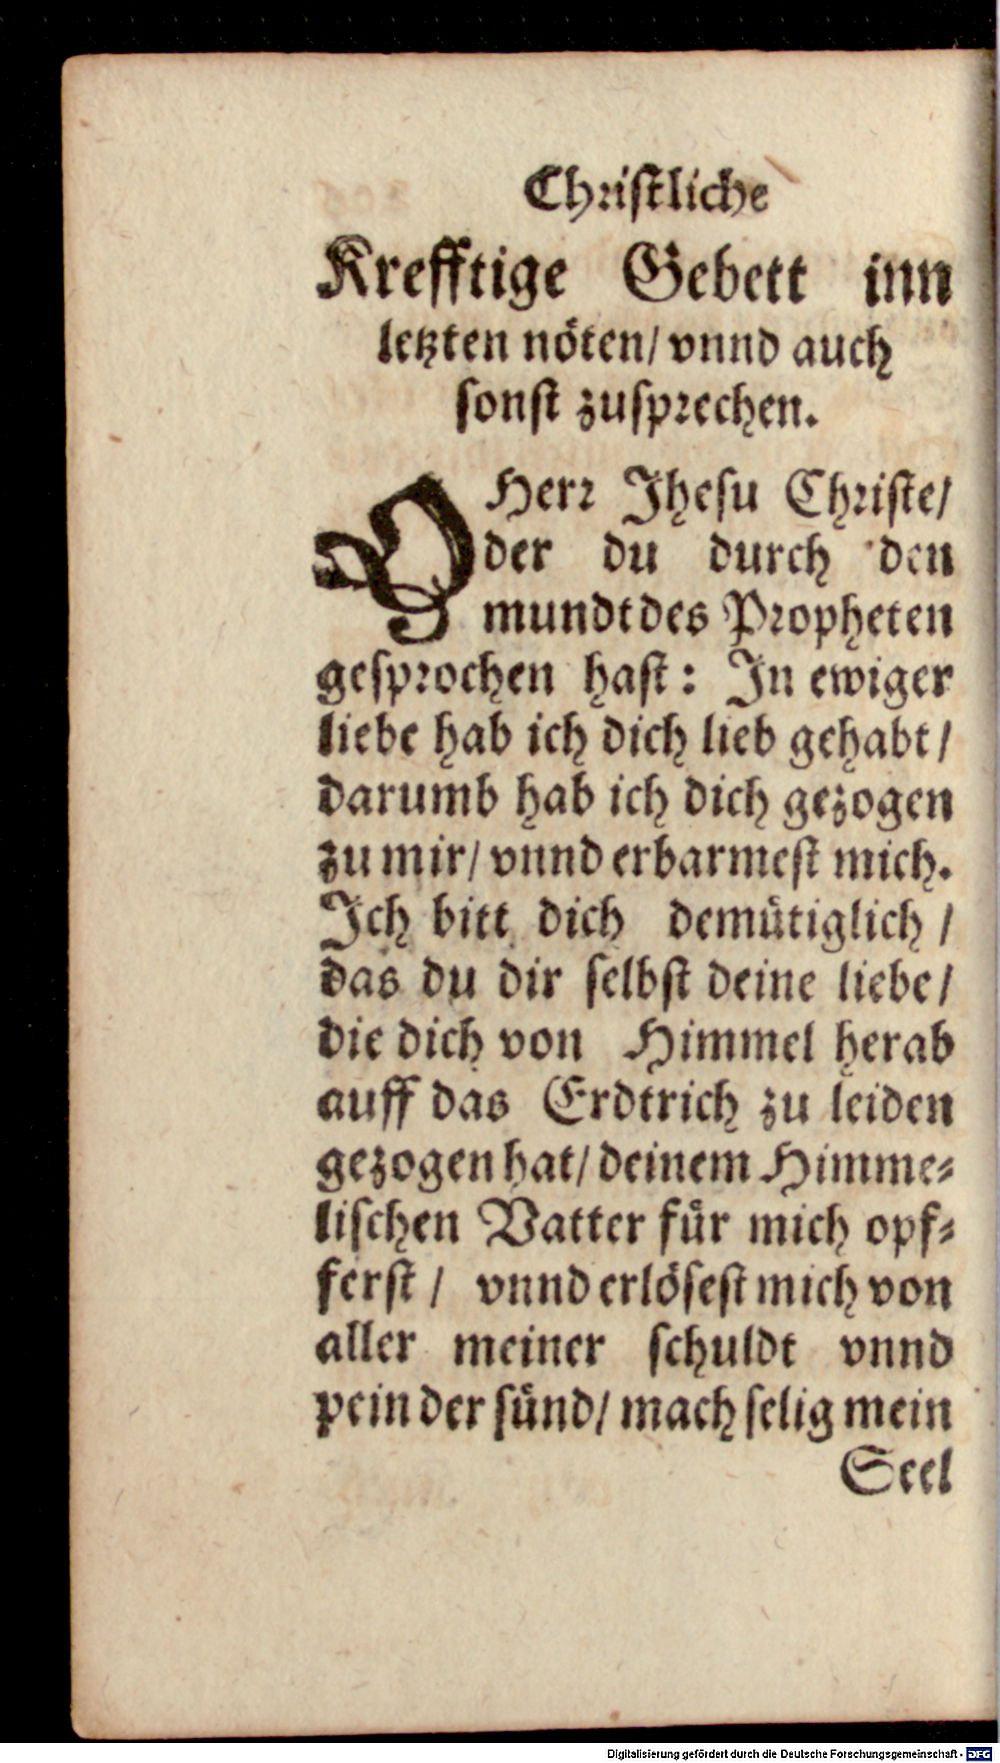 Chriſtliche
Krefftige Gebett inn
letzten nöten/ vnnd auch
ſonſt zuſprechen.
O Herr Jheſu Chriſte/
der du durch den
mundt des Propheten
geſprochen haſt: In ewiger
liebe hab ich dich lieb gehabt/
darumb hab ich dich gezogen
zu mir/ vnnd erbarmeſt mich.
Ich bitt dich demütiglich/
das du dir ſelbſt deine liebe/
die dich von Himmel herab
auff das Erdtrich zu leiden
gezogen hat/ deinem Himme-
liſchen Vatter für mich opf-
ferſt/ vnnd erlöſeſt mich von
aller meiner ſchuldt vnnd
pein der ſünd/ mach ſelig mein
Seel
Digitalisierung gefördert durch die Deutsche Forschungsgemeinschaft - DFG